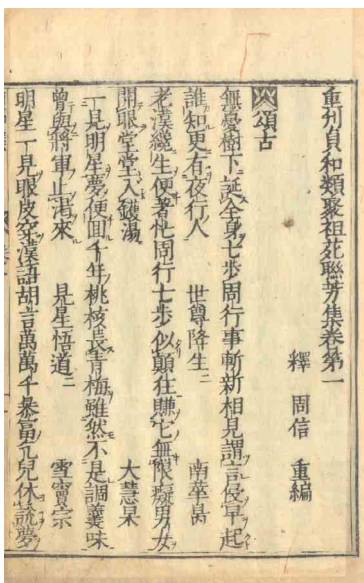 重刊貞和類聚祖苑聯芳集卷第一
釋 周信 重編
頌古
無憂樹下誕全身七歩周行事暫新相見謂言侵早起
誰知更有夜行人 世尊降生二 南華昺
老漢纔生便著忙周行七歩似顛狂賺它無限癡男女
開眼堂堂入鑊湯 大慧杲
一見明星夢便回千年桃核長青梅雖然不是調羹味
曾與將軍止渇來 見星悟道二 雪竇宗
明星一見眼皮穿漢語胡言萬萬千暴富乞兒休說夢